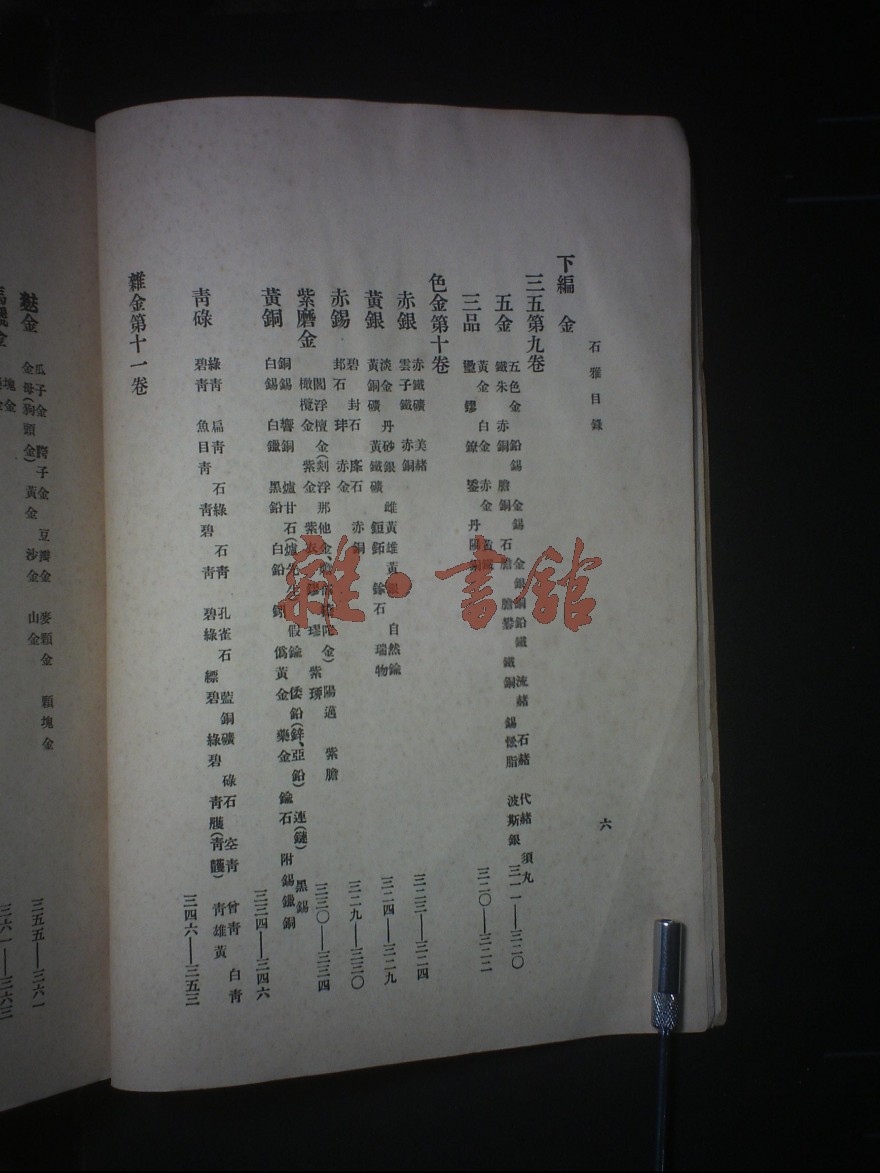 石雅目錄
六
下編 金
三五第九卷
五金
五色金 鉛錫 金錫 金銀銅鉛鐵 流赭 石赭 代赭 須丸
鐵朱 赤銅 膽銅 石膽 膽礬 鐵銅 錫 波斯銀
三一一——三二〇
三品
黃金 白金 赤金
鐐 鋈 丹陽銅
三二〇——三二二
色金第十卷
赤銀
赤鐵礦 美赭
雲子鐵 赤銅
三二三——三二四
黃銀
淡金 丹砂銀 雌黃雄黃銀 自然鍮
黃銅礦 黃鐵礦 石 瑞物
三二四——三二九
赤錫
碧 封石 石 赤銅
邽石 赤金
三二九——三三〇
紫磨金
閻浮檀金(剡浮那他金、 金) 陽邁 紫膽
橄欖金 紫金 紫衣 璆 紫
三三〇——三三四
黃銅
銅錫 響銅 爐甘石(爐先生) 假鍮 倭鉛(鋅、亞鉛) 連(鏈) 黑錫
白錫 白鑞 黑鉛 白鉛 僞黃金 藥金 鍮石 附錫鑞銅
三三四——三四六
靑碌
綠靑 扁靑 石綠 石靑 孔雀石 藍銅礦 碌石 空靑 曾靑 白靑
碧靑 魚目靑 靑碧 靑 碧綠 縹碧 綠碧 靑雘(靑䨼) 靑雄黃
三四六——三五三
雜金第十一卷
麩金
瓜子金 胯子金 豆瓣金 麥顆金 顆塊金
金母(狗頭金) 黃金 沙金 山金
三五五——三六一
塊金
三六一——三六三
雜·書館